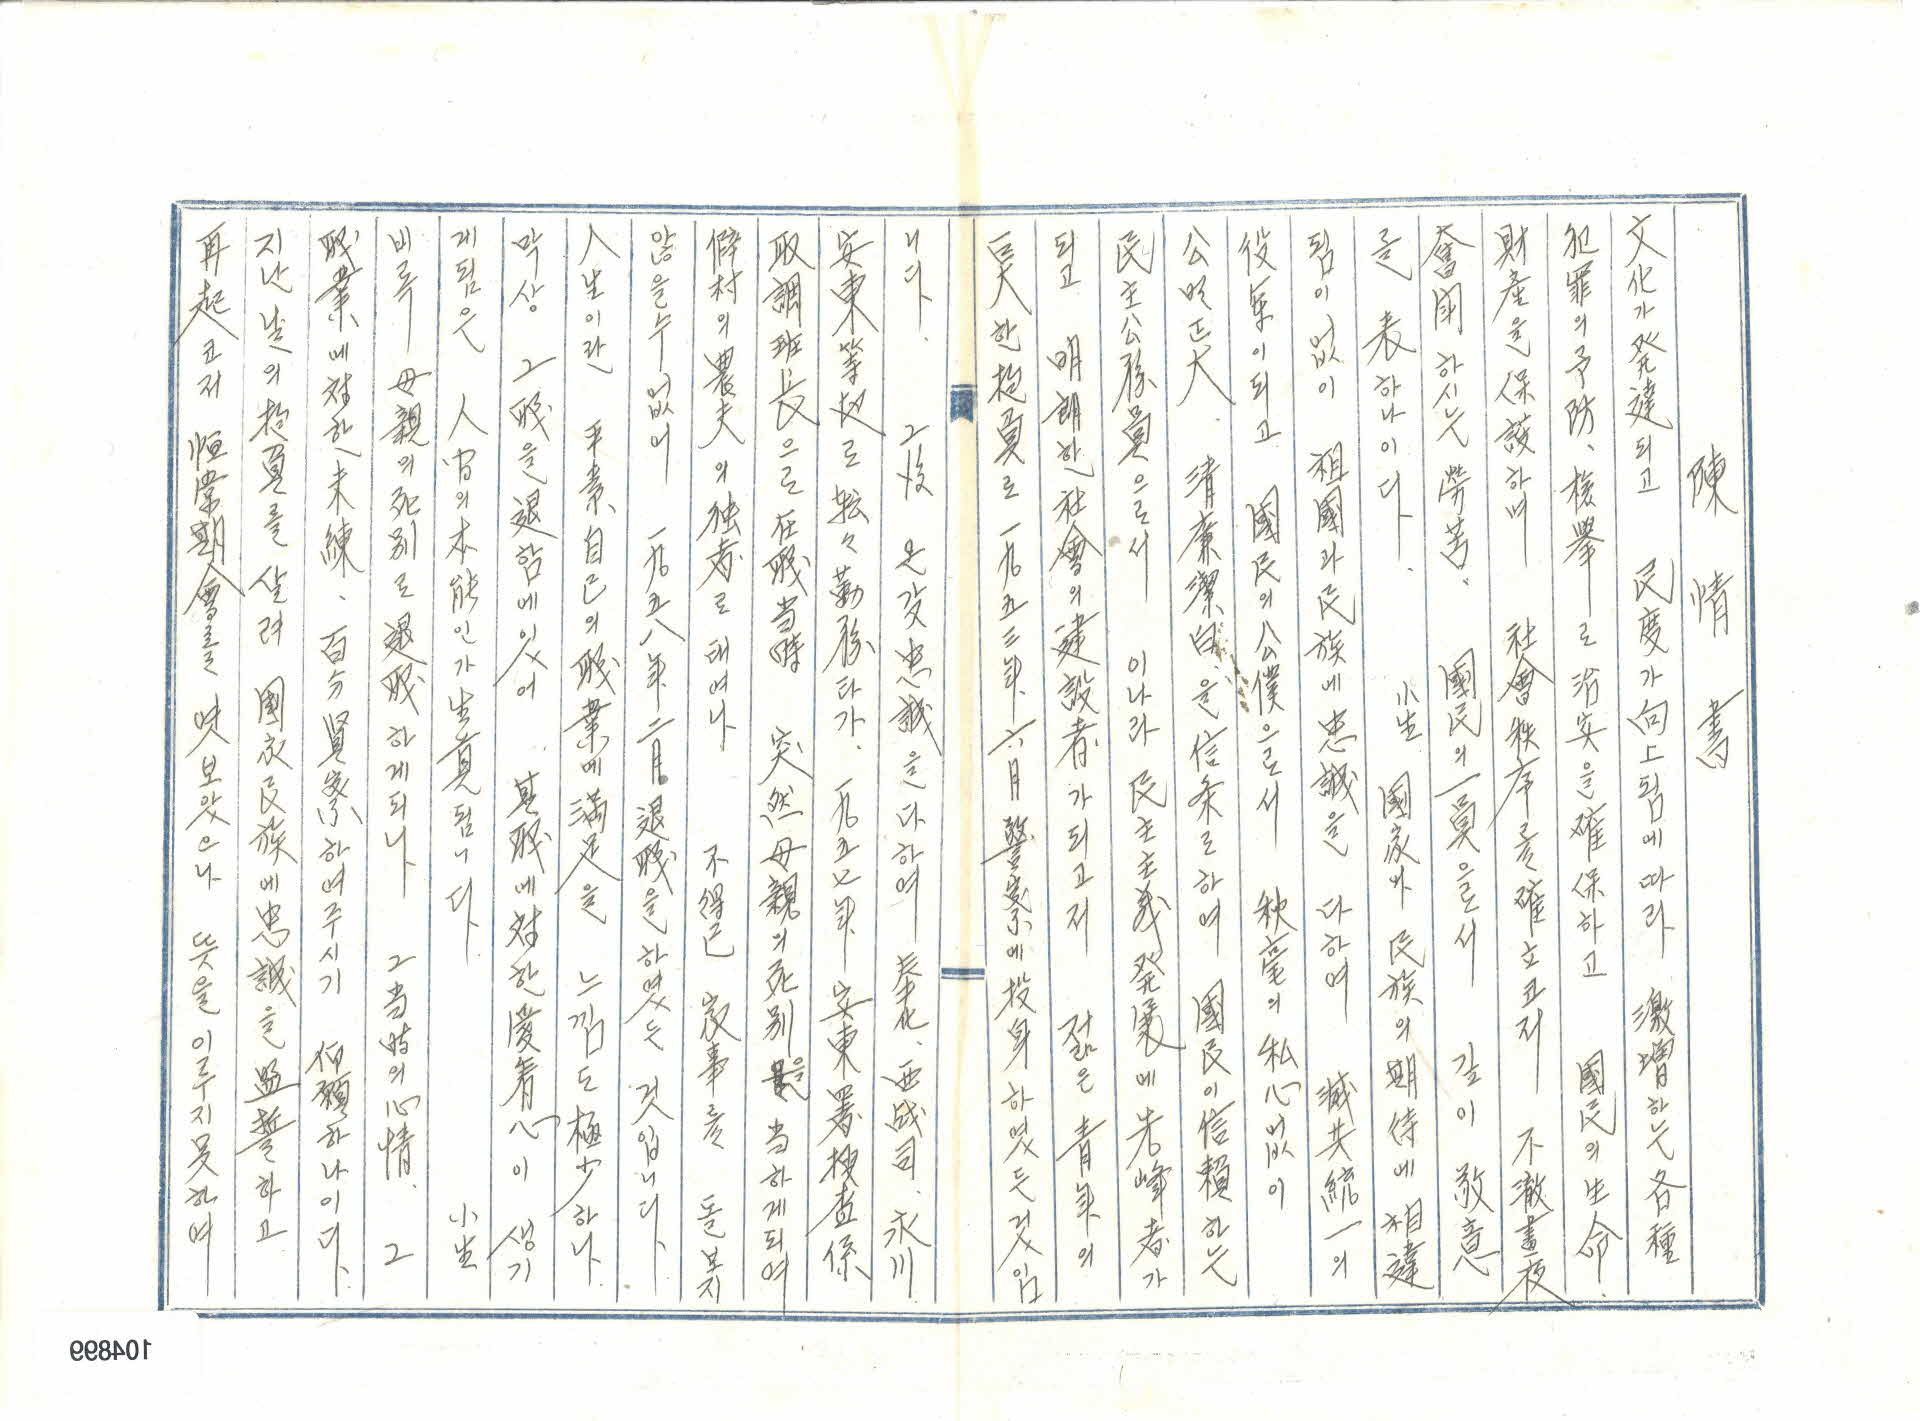 陳情書
文化가 発達되고 民度가 向上됨에 따라 激增하는 各種
犯罪의 予防、検擧로 治安을 確保하고 國民의 生命
財産을 保護하며 社會秩序를 確立코저 不撤晝夜
奮闘하시는 勞苦、國民의 一員으로서 깊이 敬意
를 表하나이다. 小生 國家와 民族의 期待에 相違
됨이 없이 祖國과 民族에 忠誠을 다하여 滅共統一의
役軍이되고 國民의 公僕으로서 秋毫의 私心없이
公明正大、清廉潔白、을 信条로하여 國民이 信賴하는
民主公務員으로서 이나라 民主主義発展에 先峰者가
되고 明朗한 社會의 建設者가되고저 젊은 青年의
巨大한 抱負로 一九五三年 六月 警察에 投身하였든것임
니다. 그後 온갖 忠誠을다하여 奉化、西威司、永川
安東等地로 転々勤務타가、一九五七年 安東署搜査係
取調班長으로 在職当時 突然 母親의 死別을 当하게되여
僻村의 農夫의 独子로 태여나 不得已 家事를 돌보지
않을수없어 一九五八年 二月 退職을 하였든 것입니다.
人生이란 平素自己의 職業에 満足을 느낌도 極少하나
막상 그職을 退함에있어 其職에 対한 愛着心이 생기
게됨은 人间의 本能인가 生覚됩니다. 小生
비록 母親의 死別로 退職하게되나 그当時의 心情、그
職業에 対한 未練、百分賢察하여주시기 仰願하나이다.
지난날의 抱負를 살려 國家民族에 忠誠을 盟誓하고
再起코저 恒常 期會를 엿보았으나 뜻을 이루지못하여
104899